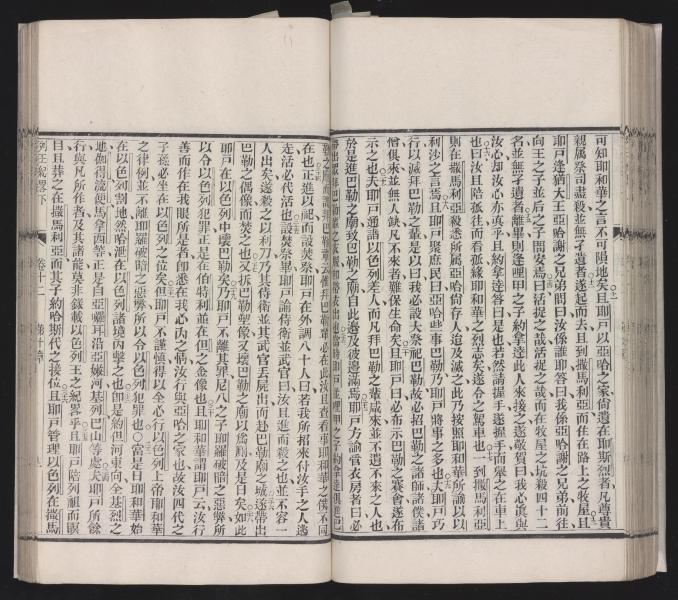 可知耶和華之言不可隕地矣且耶戶以亞哈之家倘遺在耶斯烈者凡尊貴
親屬祭司盡殺並無孑遺者遂起而去且到撒馬利亞而住在路上之牧屋且
耶戶逢猶大王亞哈謝之兄弟問曰汝係誰耶答曰我係亞哈謝之兄弟前往
向王之子並后之子問安焉曰活捉之哉活捉之哉而在牧屋之坑殺四十二
名並無孑遺者離畢則逢哩甲之子約拿達此人來接之遂敬賀曰我心眞與
汝心却汝心亦眞乎且約拿達答曰是也若然請握手遂握手而舉之在車上
也曰汝且陪孤往而看孤緣耶和華之烈志矣遂令之駕車也一到撒馬利亞
則在撒馬利亞殺悉所屬亞哈倘存人迨及滅之此乃按照耶和華所諭以
利沙之言焉且耶戶聚庶民曰亞哈些事巴勒乃耶戶將事之多也大耶戶巧
行以滅拜巴勒之輩是以曰我必設大祭祀巴勒故必招巴勒之諸師諸僕諸
僧俱來並無人缺凡不來者難保生命矣且耶戶曰必布示巴勒之賽會遂布
示之也夫耶戶通詣以色列差人而凡拜巴勒之輩咸來並不遺不來之人也
於是進巴勒之廟致巴勒之廟自此邊及彼邊滿焉耶戶方諭管衣房者曰必
在也正進以祀而設焚祭耶戶在外調八十人曰若我所招來付汝手之人逃
走活必代活也設焚祭畢耶戶諭侍衛並武官曰汝且進而殺之也並不容一
人出矣遂殺之以利刀乃其侍衛並其武官丟屍出而赴巴勒廟之城遂帶出
巴勒之偶像而焚之也又拆巴勒塑像又壞巴勒之廟以爲廁及是日矣如此
耶戶在以色列中壞巴勒矣乃耶戶不離其罪尼八之子耶羅破暗之惡弊所
以令以色列犯罪正是在伯特利並在但之金像也且耶和華謂耶戶云汝行
善而作在我眼所是者卽悉在我心內之情汝行與亞哈之家也故汝四代之
子孫必坐在以色列之位矣但耶戶不謹愼得以全心行以色列上帝耶和華
之律例並不離耶羅破暗之惡弊所以令以色列犯罪也○當是日耶和華始
在以色列割地然哈泄在以色列諸境內擊之也卽是約但河東向全基烈之
地伽得流便馬拿西等正是自亞囉耳沿亞嫩河基列巴山等處夫耶戶所餘
行與凡所作者及其諸能莫非錄載以色列王之紀畧乎且耶戶陪列祖而眠
目且葬之在撒馬利亞而其子約哈斯代之接位且耶戶管理以色列在撒馬
列王紀畧下　卷十二　第十章